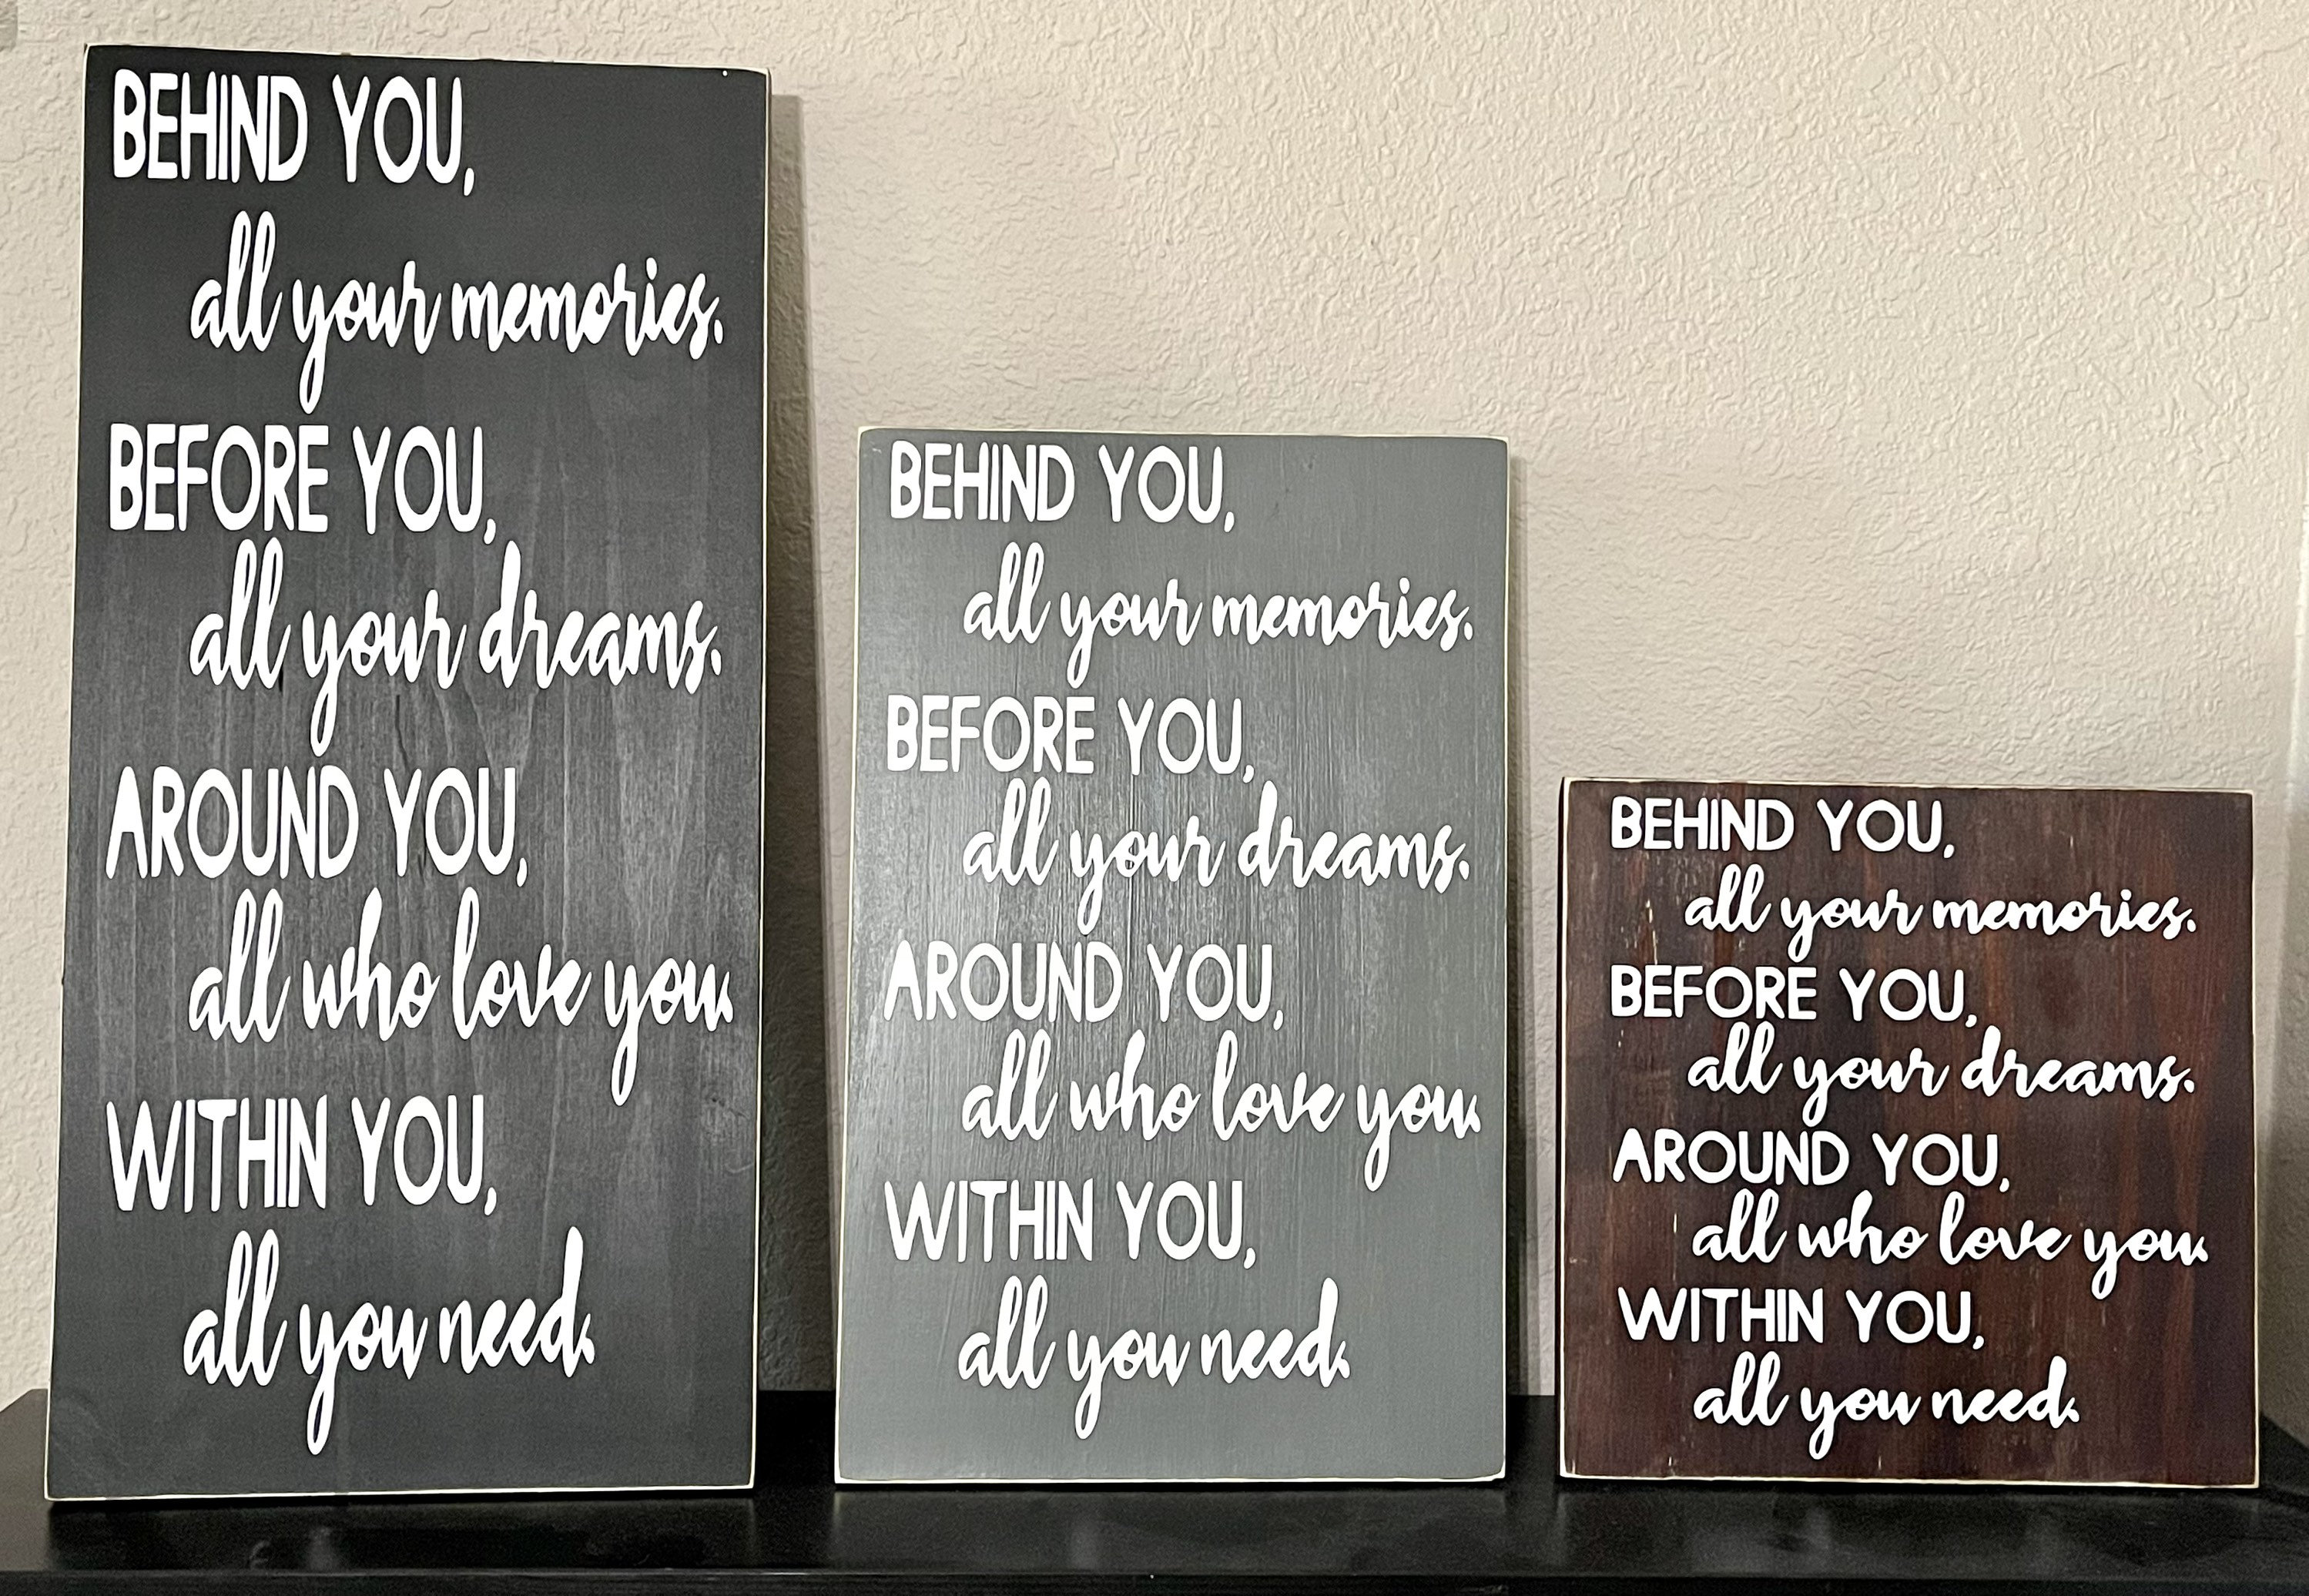 BEHIND YOU,
all your memories.
BEFORE YOU,
all your dreams.
AROUND YOU,
all who love you.
WITHIN YOU,
all you need.
BEHIND YOU,
all your memories.
BEFORE YOU,
all your dreams.
AROUND YOU,
all who love you.
WITHIN YOU,
all you need.
BEHIND YOU,
all your memories.
BEFORE YOU,
all your dreams.
AROUND YOU,
all who love you.
WITHIN YOU,
all you need.